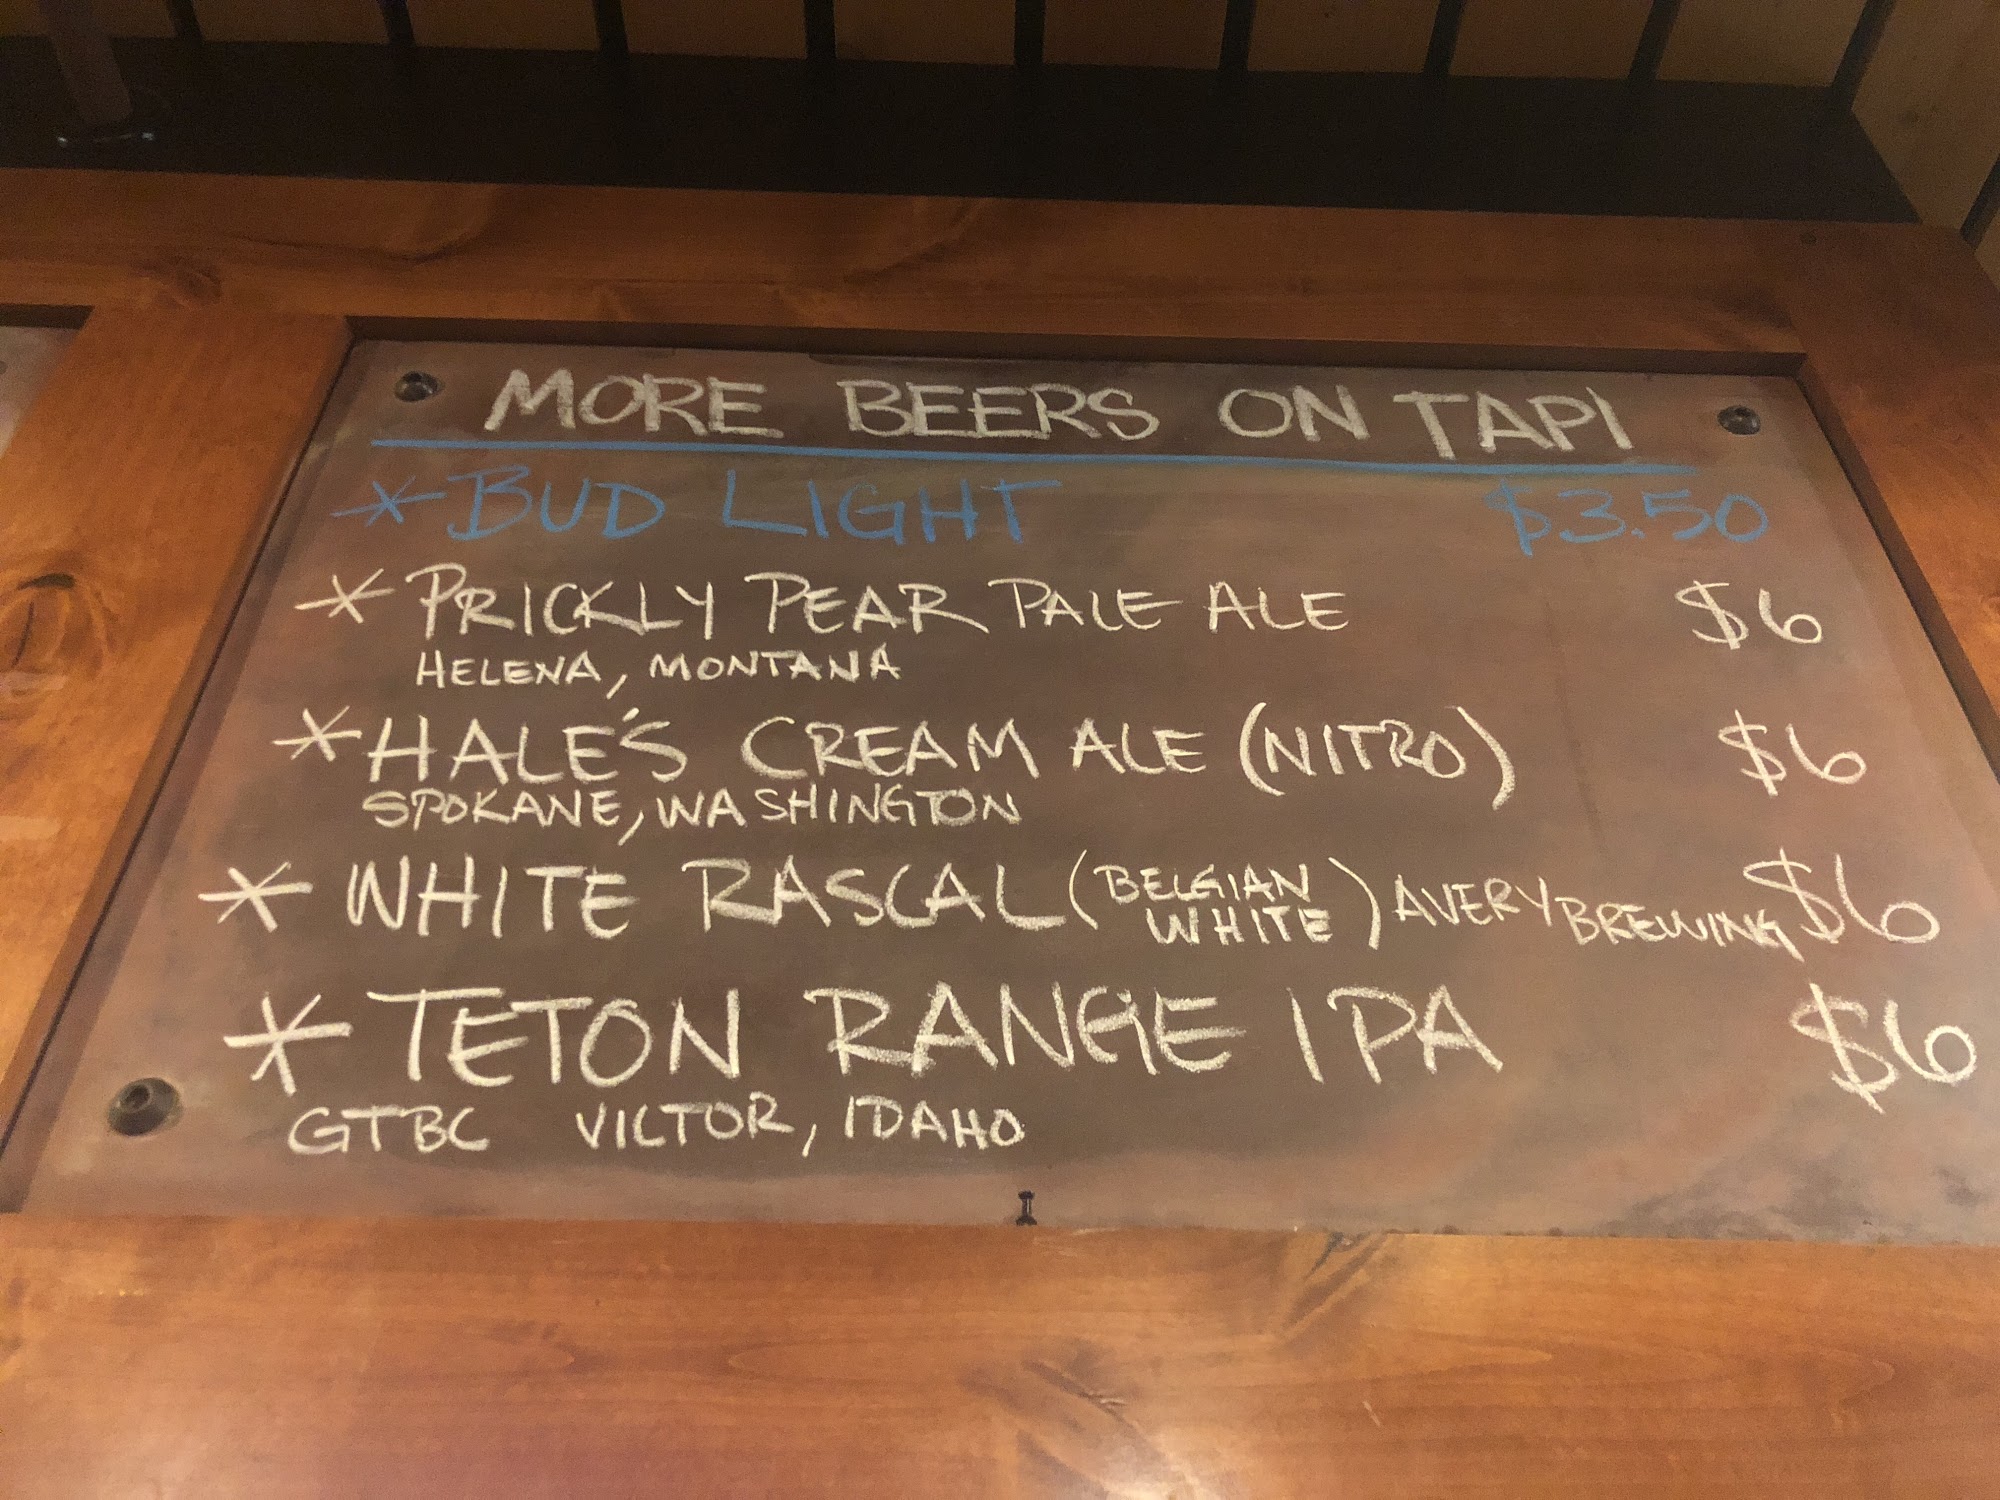 MORE BEERS ON TAP!
* BUD LIGHT $3.50
* PRICKLY PEAR PALE ALE $6
HELENA, MONTANA
* HALE'S CREAM ALE (NITRO) $6
SPOKANE, WASHINGTON
* WHITE RASCAL (BELGIAN WHITE) AVERY BREWING $6
* TETON RANGE IPA $6
GTBC VICTOR, IDAHO